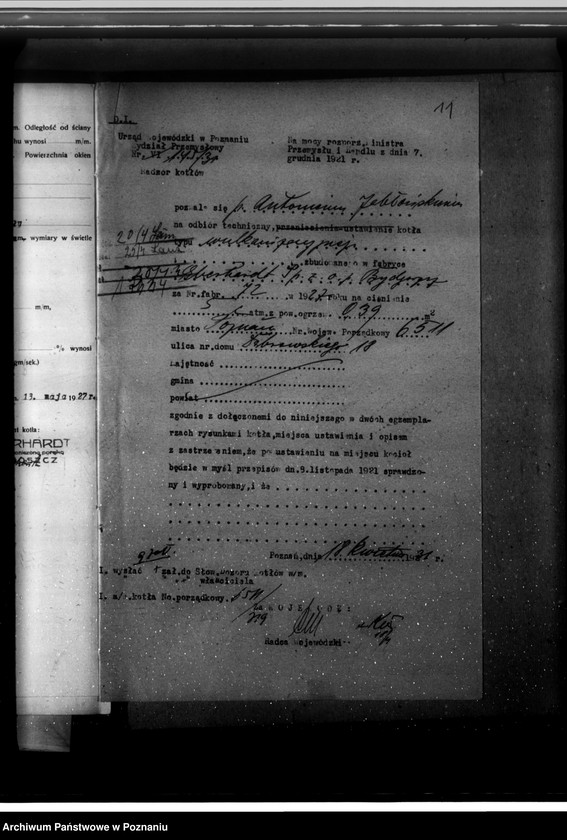 m. Odległość od ściany
hu wynosi m/m.
Powierzchnia okien
wymiary w świetle
m/m,
% wynosi
gm/sek.)
13. maja 1927 r.
kotła:
RHARDT
OSZCZ
11
D.I.
Urząd Wojewódzki w Poznaniu
Wydział Przemysłowy
Nr.
Nadzór kotłów
Na mocy rozporz. Ministra
Przemysłu i Handlu z dnia 7.
grudnia 1921 r.
pozwala się p. Antoniemu Jabłońskiemu
na odbiór techniczny, przeniesienie-ustawienie kotła
typu
20/4
zbudowano w fabryce
Eberhardt Sp. z o. p. Bydgoszcz
za Nr. fabr. 72 w 1927 roku na ciśnienie
5 atm. z pow. ogrzew. 0,39 m²
miasto Poznań Nr. Wojew. Porządkowy 6511
ulica nr. domu Dąbrowskiego 18
Majętność
gmina
powiat
zgodnie z dołączonemi do niniejszego w dwóch egzempla-
rzach rysunkami kotła, miejsca ustawienia i opisem
z zastrzeżeniem, że po ustawieniu na miejscu kocioł
będzie w myśl przepisów dn. 9. listopada 1921 sprawdzo-
ny i wypróbowany, i że
Poznań, dnia 18 kwietnia 1931 r.
I. wysłać zał. do Stow. Dozoru Kotłów w/m.
" " właściciela
I. a/a. kotła No. porządkowy. 6511
Za WOJEWODĘ:
Radca Wojewódzki
Archiwum Państwowe w Poznaniu